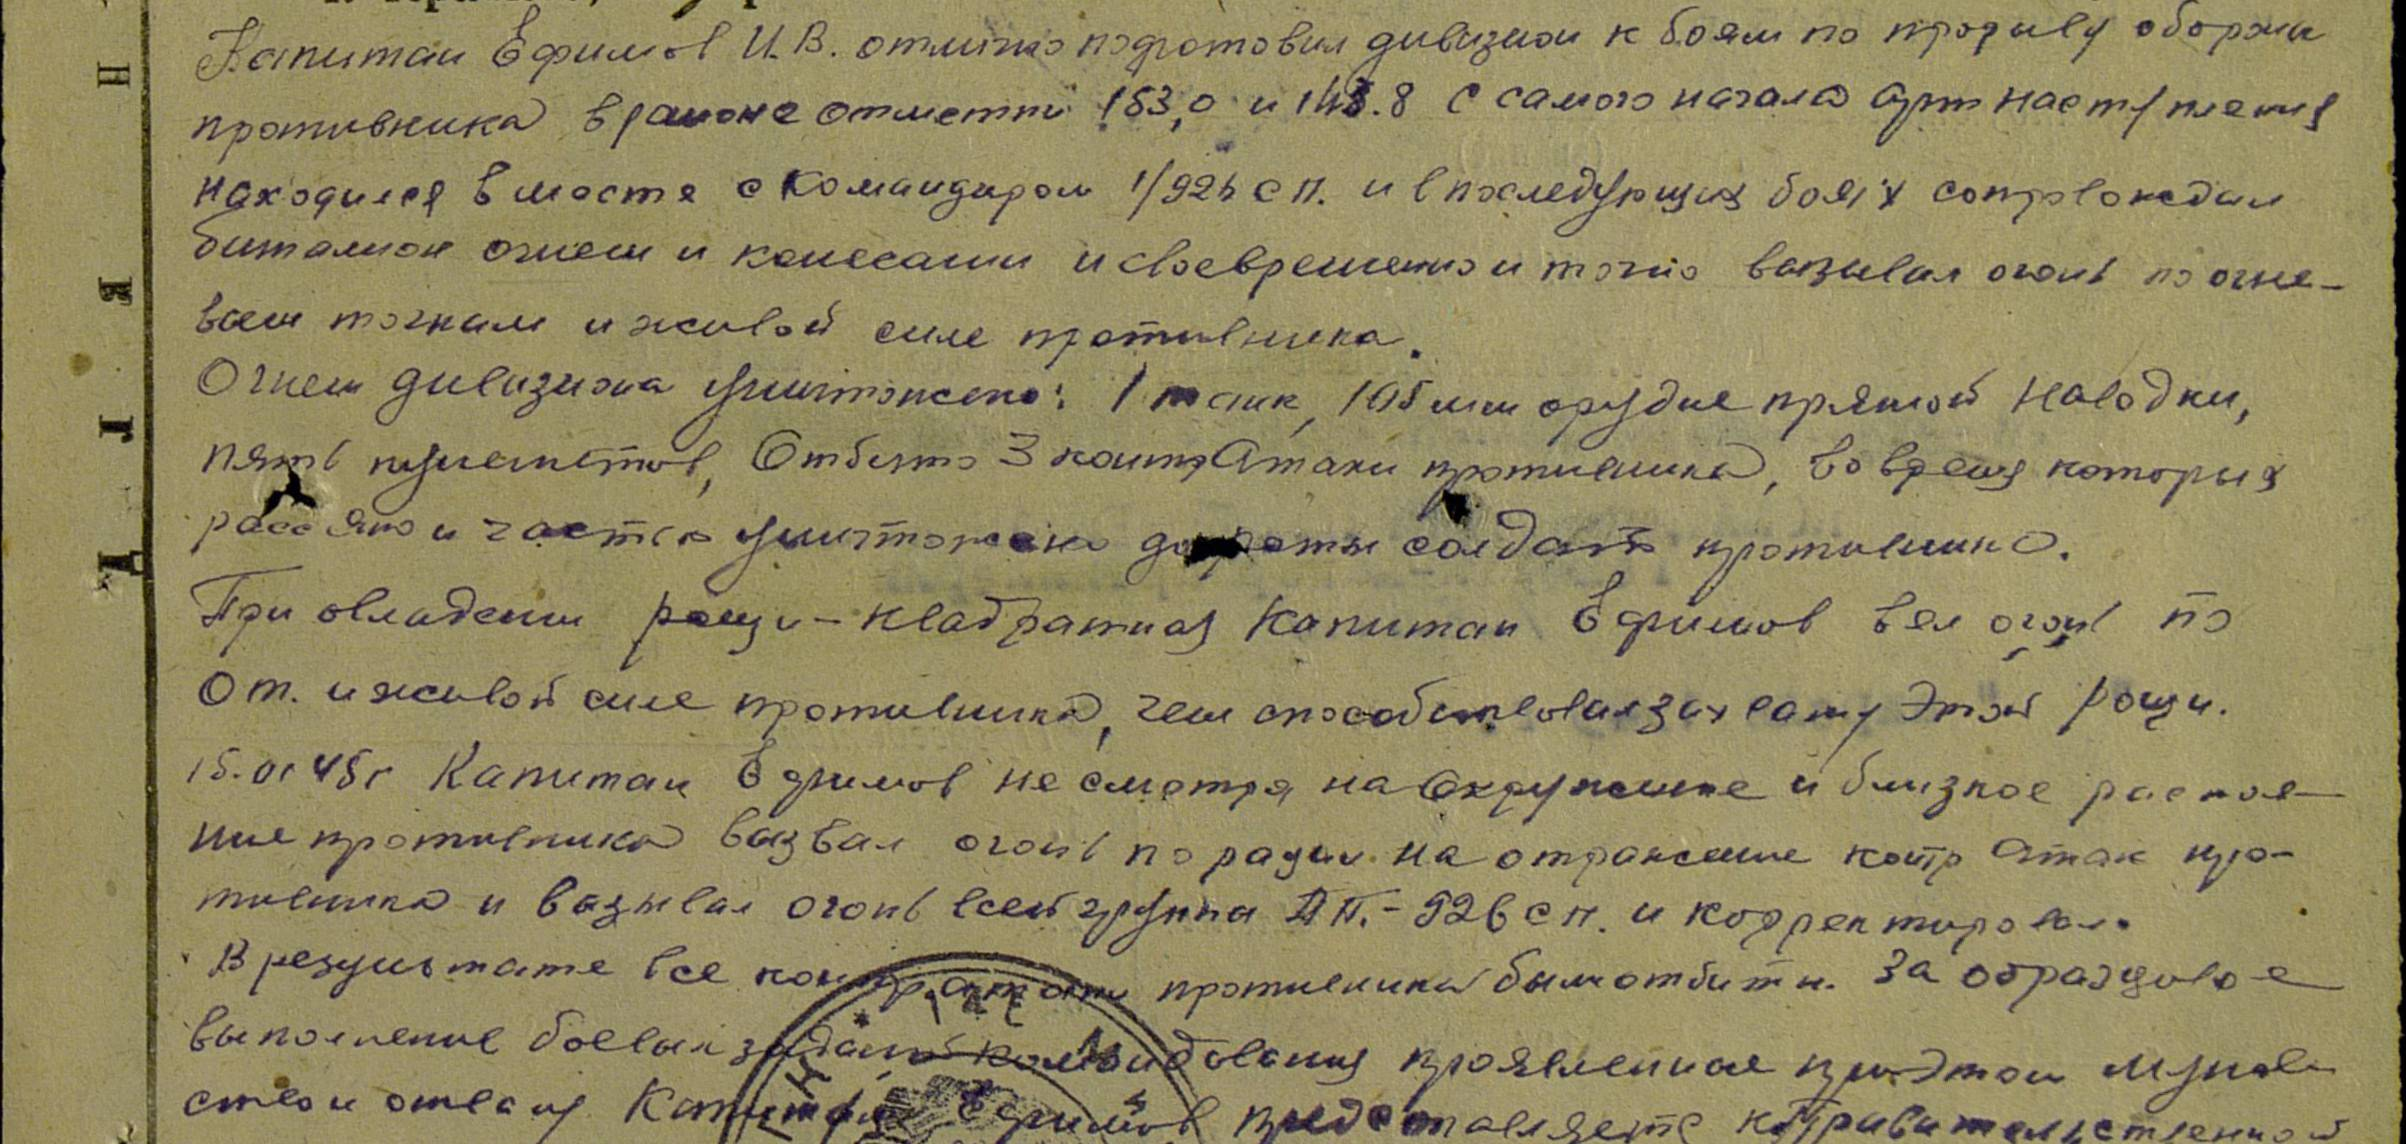 Капитан Ефимов И.В. отлично подготовил дивизион к боям по прорыву обороны
противника в районе отметки 153,0 и 143.8 С самого начала арт наступления
находился вместе с командиром 1/926 с п. и в последующих боях сопровождал
баталион огнем и колесами и своевременно и точно вызывал огонь по огне-
вым точкам и живой силе противника.
Огнем дивизиона уничтожено: 1 танк, 105 мм орудие прямой наводки,
пять пулеметов, Отбито 3 контр атаки противника, во время которых
рассеяно и частью уничтожено до роты солдат противника.
При овладении рощи-квадратная Капитан Ефимов вел огонь по
От. и живой силе противника, чем способствовал захвату этой рощи.
15.01 45г Капитан Ефимов не смотря на окружение и близкое располо-
ние противника вызвал огонь по радио на отражение контр атак про-
тивника и вызывал огонь всей группы ПП.-926 с п. и корректировал.
В результате все контратаки противника были отбиты. За образцовое
выполнение боевых заданий командования проявленное при этом мужес-
ство и отвагу Капитан Ефимов представляется к Правительственной